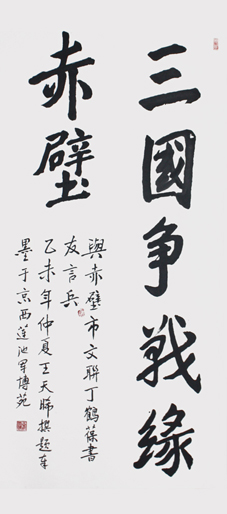 三國争戰緣
赤壁
與赤壁市文聯丁鶴葆書
友言兵
乙未年仲夏王天勝撰題華
墨于京西蓮池軍博苑